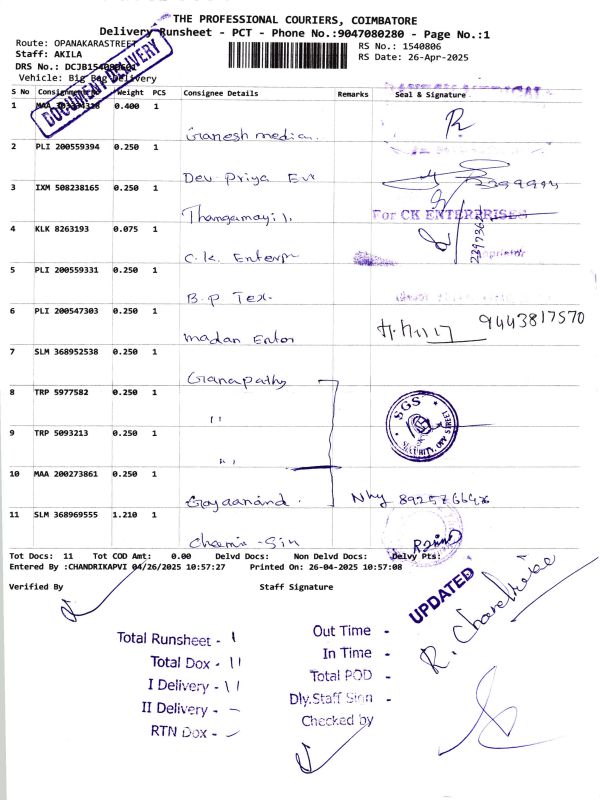 THE PROFESSIONAL COURIERS, COIMBATORE
Delivery Runsheet - PCT - Phone No.:9047080280 - Page No.:1
Route: OPANAKARASTREET
RS No.: 1540806
Staff: AKILA
RS Date: 26-Apr-2025
DRS No.:
Vehicle: Big Bag Delivery
DOCUMENT DELIVERY
S No Consignment No Weight PCS Consignee Details Remarks Seal & Signature
1 MAA 0.400 1
Ganesh medica.
2 PLI 200559394 0.250 1
Dev Priya
3 IXM 508238165 0.250 1
Thangamayil.
For CK ENTERPRISES
4 KLK 8263193 0.075 1
C.K. Enterp
5 PLI 200559331 0.250 1
B.P Tex.
6 PLI 200547303 0.250 1
Madan Enter
9443817570
7 SLM 368952538 0.250 1
Ganapathy
8 TRP 5977582 0.250 1
"
SGS
SECURITY, OPP STREET
9 TRP 5093213 0.250 1
"
10 MAA 200273861 0.250 1
11 SLM 368969555 1.210 1
Tot Docs: 11 Tot COD Amt: 0.00 Delvd Docs: Non Delvd Docs: Delvy Pts:
Entered By :CHANDRIKAPVI 04/26/2025 10:57:27 Printed On: 26-04-2025 10:57:08
Verified By Staff Signature
UPDATED
R. Chandrika
Total Runsheet - 1
Total Dox - 11
I Delivery - 11
II Delivery -
RTN Dox -
Out Time -
In Time -
Total POD -
Dly.Staff Sign -
Checked by